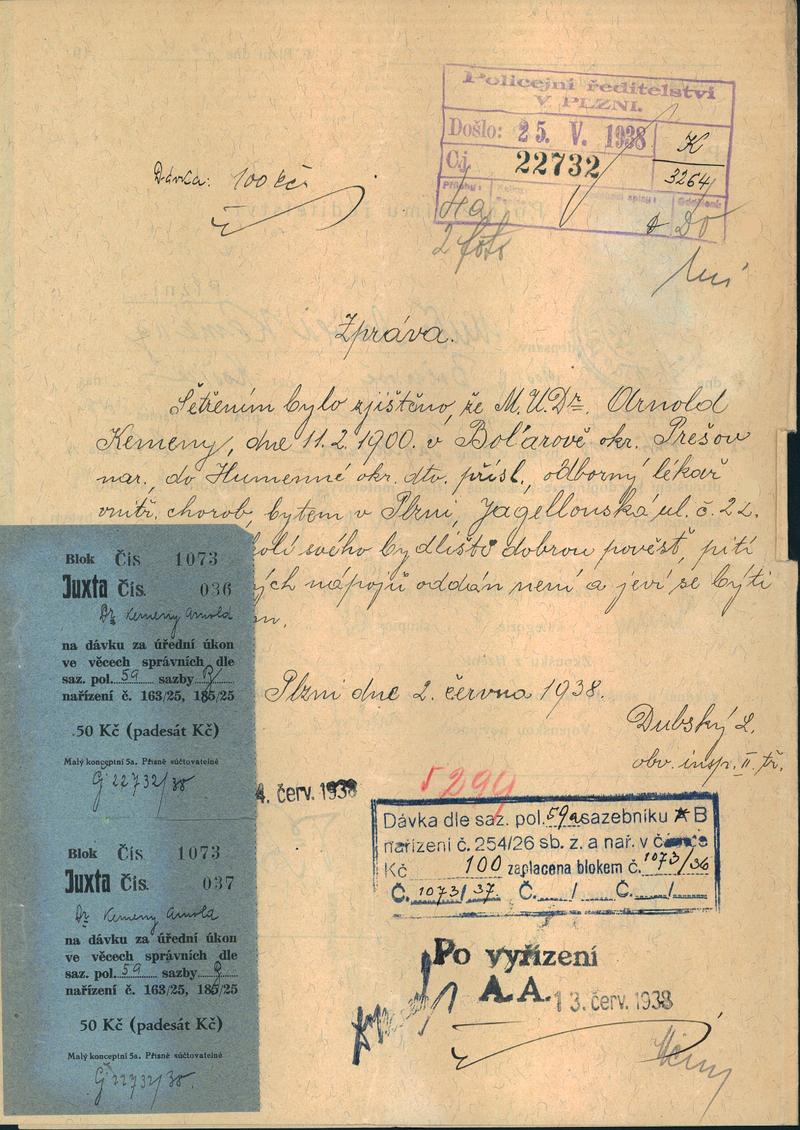 Policejní ředitelství
V PLZNI.
Došlo: 25. V. 1938
K
Čj. 22732
3264
Přílohy:
2 foto
Dávka: 100 Kč
Zpráva.
Šetřením bylo zjištěno, že M.U.Dr. Arnold
Kemeny, dne 11.2.1900. v Bol'arově okr. Prešov
nar., do Humenné okr. dtv. přísl., odborný lékař
vnitř. chorob, bytem v Plzni, Jagellonská ul. č. 22.
kolí svého bydliště dobrou pověst, pití
ých nápojů oddán není a jeví se býti
Plzni dne 2. června 1938.
Dubský L.
obv. insp. II. tř.
Blok Čís 1073
Juxta Čís. 036
Dr. Kemeny Arnold
na dávku za úřední úkon
ve věcech správních dle
saz. pol. 59 sazby B
nařízení č. 163/25, 185/25
50 Kč (padesát Kč)
Malý konceptní 5a. Přísně súčtovatelné
Č 22732/38
Blok Čís 1073
Juxta Čís. 037
Dr. Kemeny Arnold
na dávku za úřední úkon
ve věcech správních dle
saz. pol. 59 sazby B
nařízení č. 163/25, 185/25
50 Kč (padesát Kč)
Malý konceptní 5a. Přísně súčtovatelné
Č 22732/38
4. červ. 1938
5299
Dávka dle saz. pol. 59a sazebníku A B
nařízení č. 254/26 sb. z. a nař. v
Kč 100 zaplacena blokem č. 1073/36
Č. 1073/37. Č. / Č. /
Po vyřízení
A.A. 13. červ. 1938